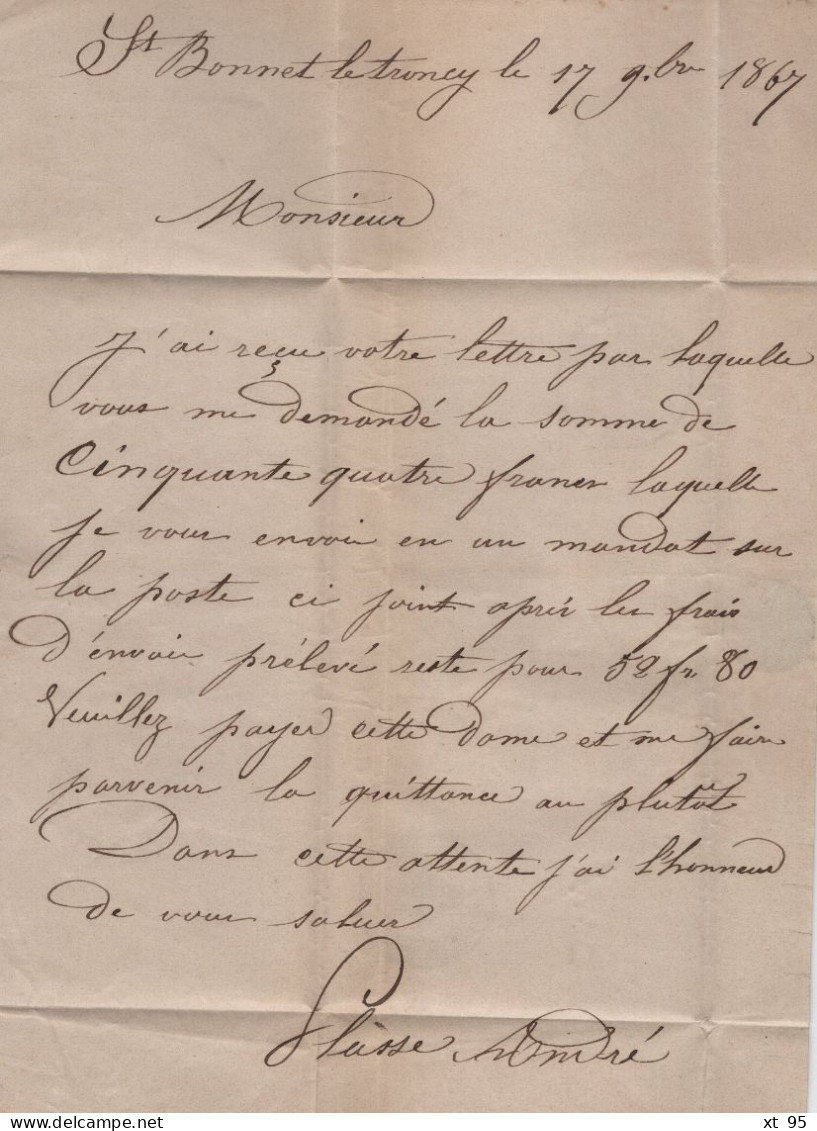 St Bonnet le troncy le 17 9.bre 1867
Monsieur
J'ai reçu votre lettre par laquelle
vous me demandé la somme de
Cinquante quatre francs laquelle
je vous envoi en un mandat sur
la poste ci joint après les frais
d'énvoir prélevé reste pour 52 fr. 80
Veuillez payer cette dame et me faire
parvenir la quittance au plutôt
Dans cette attente j'ai l'honneur
de vous saluer
Plasse André
DELCAMPE.NET
xt_95